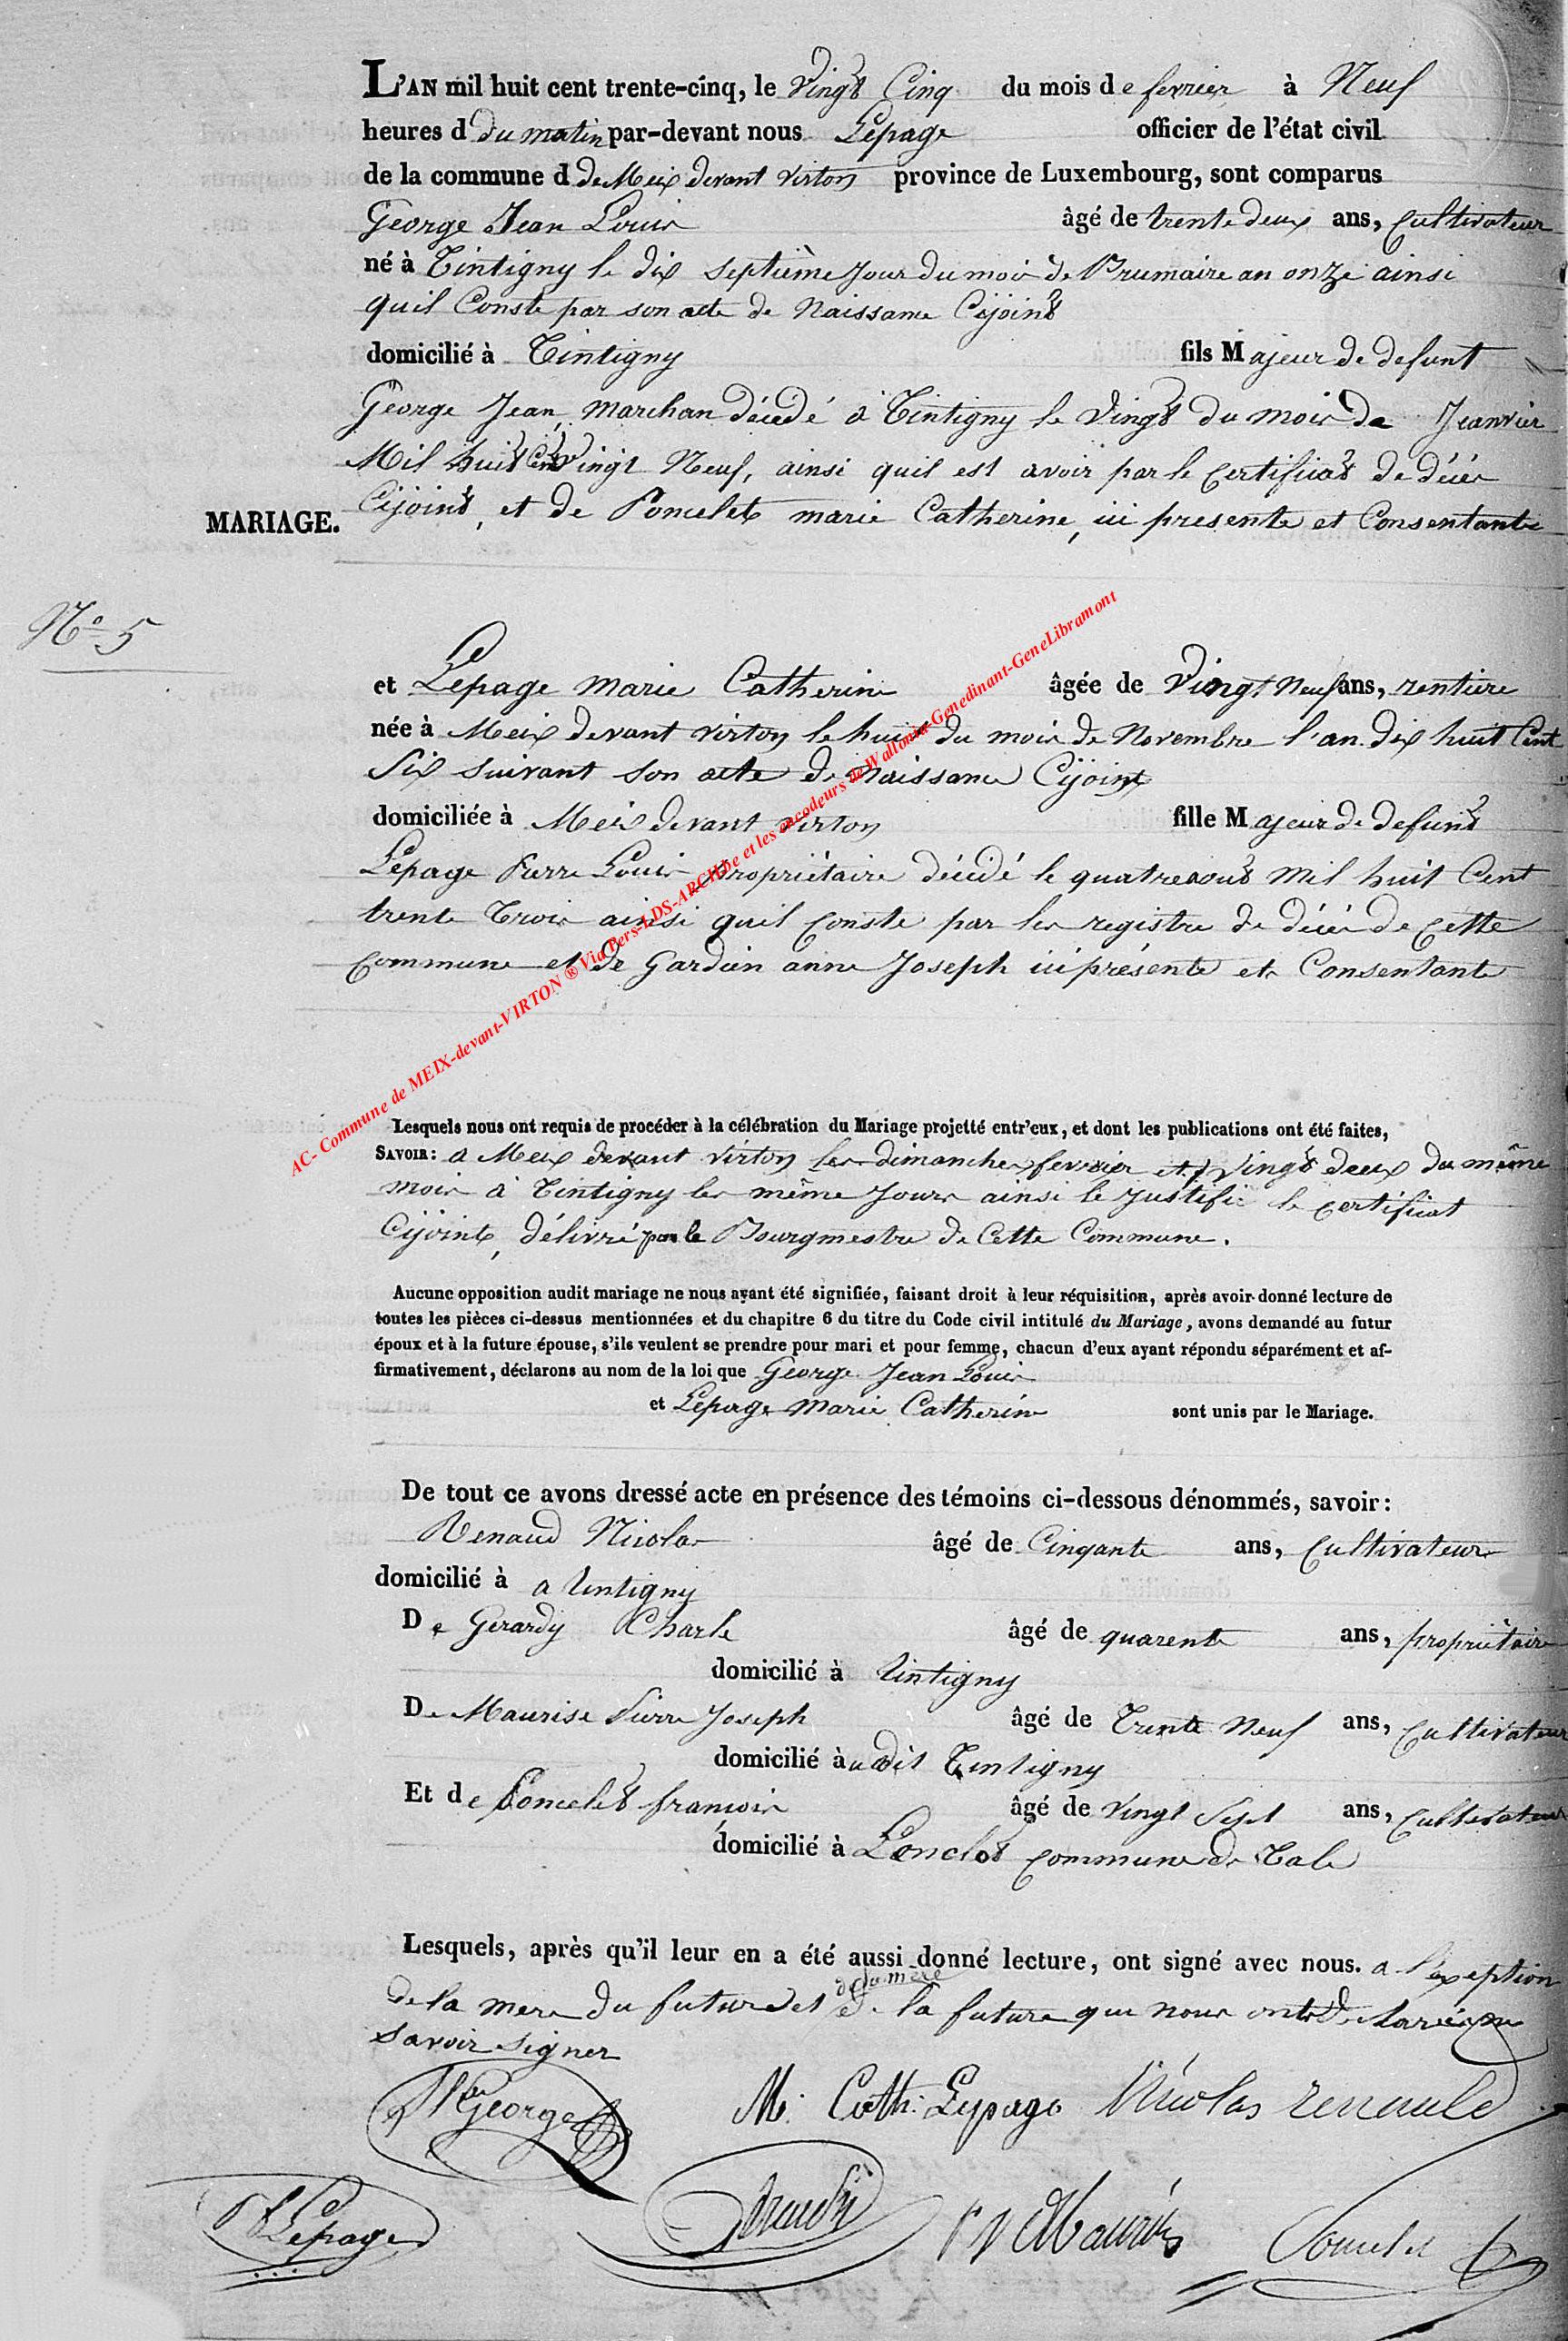 L'AN mil huit cent trente-cinq, le vingt Cinq du mois de fevrier à Neuf
heures d du matin par-devant nous Lepage officier de l'état civil
de la commune d de Meix devant virton province de Luxembourg, sont comparus
George Jean Louis âgé de trente deux ans, Cultivateur
né à Tintigny le dix septième Jour du mois de Brumaire an onze ainsi
quil Conste par son acte de Naissance Cijoint
domicilié à Tintigny fils Majeur de defunt
George Jean, marchan décédé à Tintigny le Vingt du mois de Jeanvier
Mil huit Cent vingt Neuf, ainsi quil est avoir par le Certificat de décès
MARIAGE. Cijoint, et de Poncelet marie Catherine, ici presente et Consentante
No 5
et Lepage Marie Catherine âgée de Vingt Neuf ans, rentiere
née à Meix devant virton le huit du mois de Novembre l'an dix huit Cent
Six suivant son acte de Naissance Cijoint
domiciliée à Meix devant virton fille Majeur de defunt
Lepage Pierre Louis propriétaire décédé le quatre aout Mil huit Cent
trente Trois ainsi quil Conste par les registre de décès de Cette
Commune et de Gardien anne Joseph ici présente et Consentante
AC- Commune de MEIX-devant-VIRTON ® Via Pers-LDS-ARCH.be et les encodeurs de Wallonia-Genedinant-GeneLibramont
Lesquels nous ont requis de procéder à la célébration du Mariage projetté entr'eux, et dont les publications ont été faites,
SAVOIR: a Meix devant virton les dimanches fevrier et vingt deux du même
mois à Tintigny les même Jours ainsi le Justifie le Certificat
Cijoint, délivré par le Bourgmestre de Cette Commune.
Aucune opposition audit mariage ne nous ayant été signifiée, faisant droit à leur réquisition, après avoir donné lecture de
toutes les pièces ci-dessus mentionnées et du chapitre 6 du titre du Code civil intitulé du Mariage, avons demandé au futur
époux et à la future épouse, s'ils veulent se prendre pour mari et pour femme, chacun d'eux ayant répondu séparément et af-
firmativement, déclarons au nom de la loi que George Jean Louis
et Lepage Marie Catherine sont unis par le Mariage.
De tout ce avons dressé acte en présence des témoins ci-dessous dénommés, savoir:
Renaud Nicolas âgé de Cinqante ans, Cultivateur
domicilié à a tintigny
De Gerardy Charle âgé de quarente ans, propriétaire
domicilié à tintigny
De Maurise Pierre Joseph âgé de Trente Neuf ans, Cultivateur
domicilié à audit Tintigny
Et de Poncelet francois âgé de vingt Sept ans, Cultivateur
domicilié à Lenclos Commune de Tale
Lesquels, après qu'il leur en a été aussi donné lecture, ont signé avec nous. a l'exeption
de la mere
de la mere du future et de la future que nous ont declarées ne
Savoir signer
George M. Cath: Lepage Nicolas renauld
Lepage Maurise Poncelet